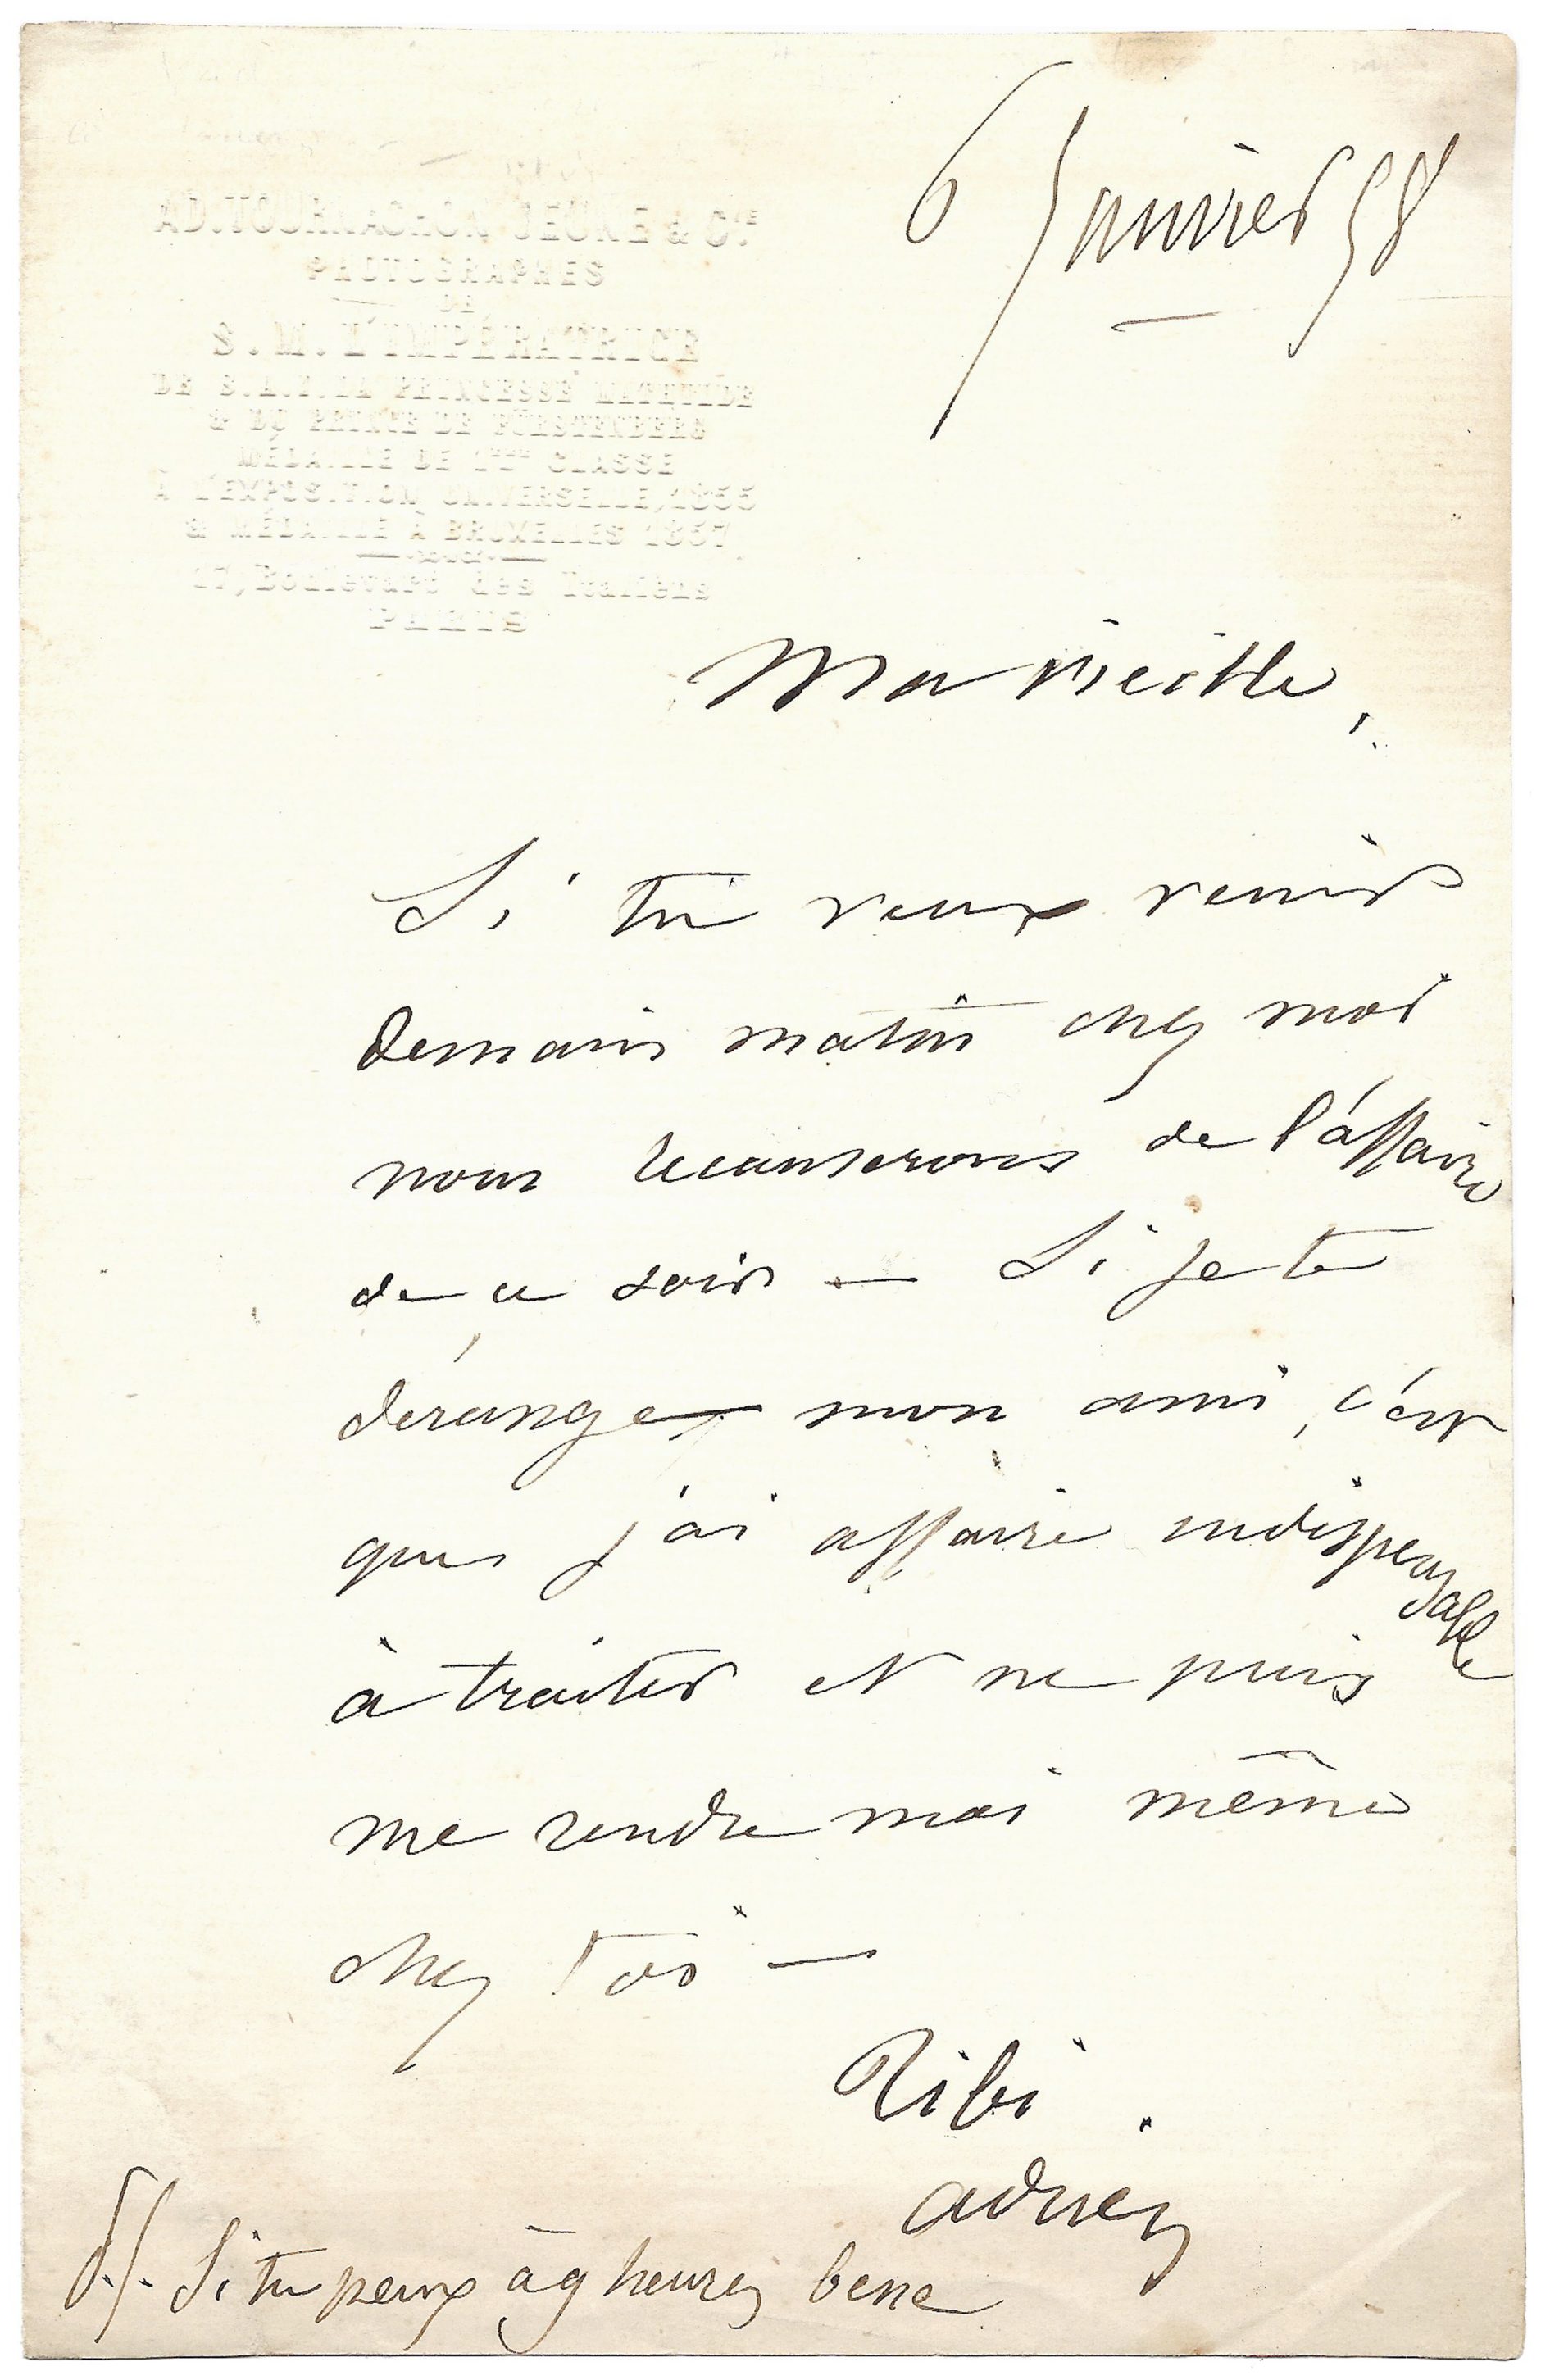 AD. TOURNACHON JEUNE & Cie
PHOTOGRAPHES
DE
S. M. L'IMPÉRATRICE
DE S. A. I. LA PRINCESSE MATHILDE
& DU PRINCE DE FURSTENBERG
MÉDAILLE DE 1ère CLASSE
A L'EXPOSITION UNIVERSELLE, 1855
& MÉDAILLE A BRUXELLES 1857
17, Boulevart des Italiens
PARIS
6 Janvier 58
Ma vieille,
Si tu veux venir
demain matin chez moi
nous recauserons de l'affaire
de ce soir — Si je te
dérange mon ami, c'est
que j'ai affaire indispensable
à traiter et ne puis
me rendre moi même
chez toi —
Tibi
adrien
P.S. Si tu peux à 9 heures bene